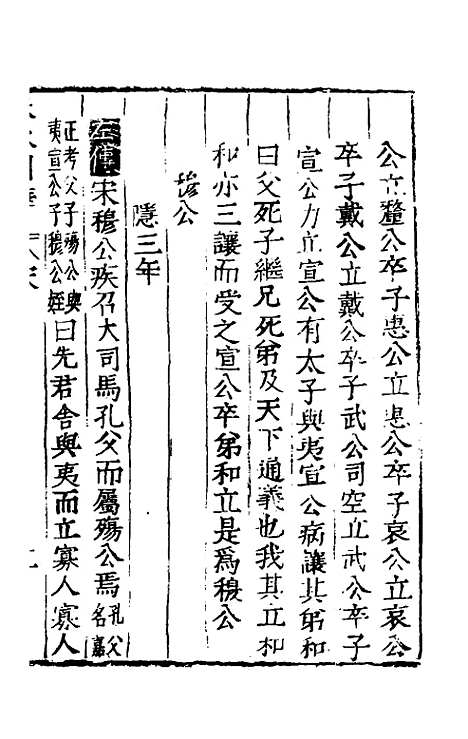 公立釐公卒子惠公立惠公卒子哀公立哀公
卒子戴公立戴公卒子武公司空立武公卒子
宣公力立宣公有太子與夷宣公病讓其弟和
曰父死子繼兄死弟及天下通義也我其立和
和亦三讓而受之宣公卒弟和立是爲穆公
公
隱三年
左傳宋穆公疾召大司馬孔父而屬殤公焉孔父名嘉
正考父子殤公與夷宣公子穆公姪曰先君舍與夷而立寡人寡人